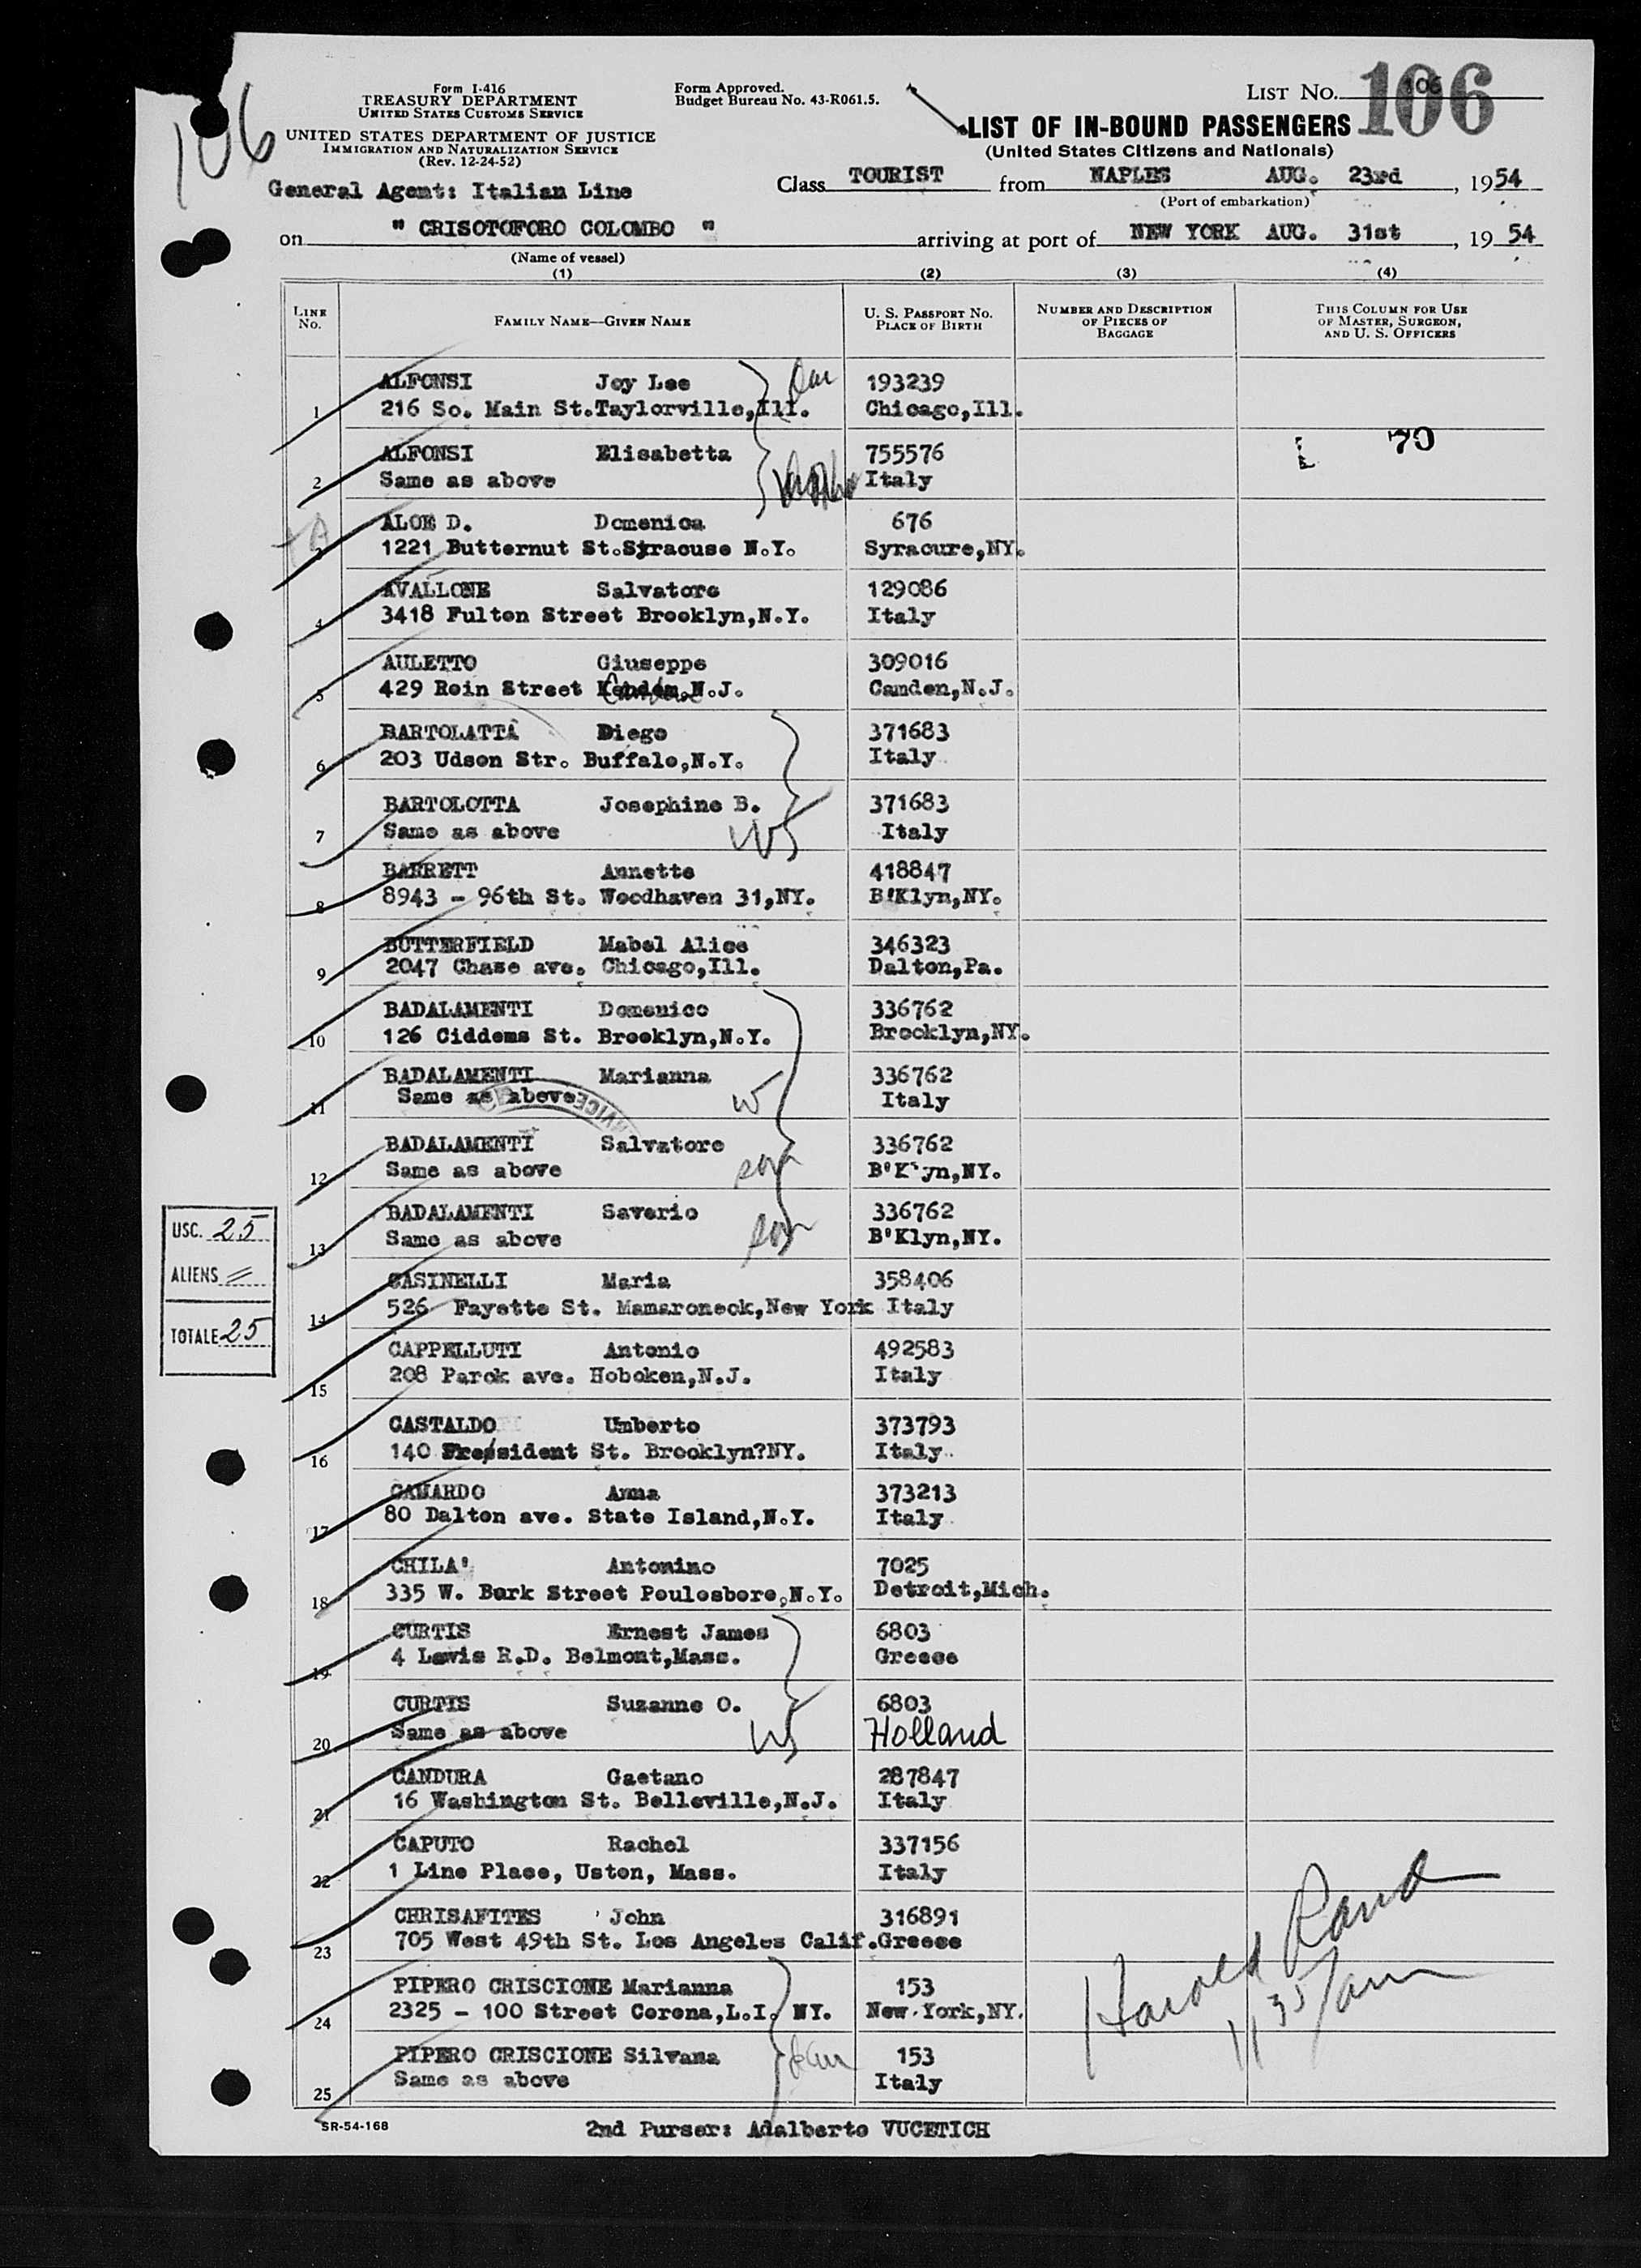 106
Form I-416
TREASURY DEPARTMENT
UNITED STATES CUSTOMS SERVICE
UNITED STATES DEPARTMENT OF JUSTICE
IMMIGRATION AND NATURALIZATION SERVICE
(Rev. 12-24-52)
Form Approved.
Budget Bureau No. 43-R061.5.
LIST No. 106
106
LIST OF IN-BOUND PASSENGERS
(United States Citizens and Nationals)
General Agent: Italian Line
Class TOURIST from NAPLES AUG. 23rd, 1954
(Port of embarkation)
on " CRISOTOFORO COLOMBO " arriving at port of NEW YORK AUG. 31st, 19 54
(Name of vessel)
(1) (2) (3) (4)
LINE No. FAMILY NAME—GIVEN NAME U. S. PASSPORT NO. PLACE OF BIRTH NUMBER AND DESCRIPTION OF PIECES OF BAGGAGE THIS COLUMN FOR USE OF MASTER, SURGEON, AND U. S. OFFICERS
ALFONSI Joy Lee 193239
1 216 So. Main St.Taylorville,Ill. Chicago,Ill.
ALFONSI Elisabetta 755576 70
2 Same as above Italy
ALOE D. Domenica 676
3 1221 Butternut St.Syracuse N.Y. Syracure,NY.
AVALLONE Salvatore 129086
4 3418 Fulton Street Brooklyn,N.Y. Italy
AULETTO Giuseppe 309016
5 429 Roin Street Camden N.J. Camden,N.J.
BARTOLATTA Diego 371683
6 203 Udson Str. Buffalo,N.Y. Italy
BARTOLOTTA Josephine B. 371683
7 Same as above W Italy
BARRETT Annette 418847
8 8943 - 96th St. Woodhaven 31,NY. B'Klyn,NY.
BUTTERFIELD Mabel Alice 346323
9 2047 Chase ave. Chicago,Ill. Dalton,Pa.
BADALAMENTI Domenico 336762
10 126 Ciddems St. Brooklyn,N.Y. Brooklyn,NY.
BADALAMENTI Marianna 336762
11 Same as above W Italy
BADALAMENTI Salvatore 336762
12 Same as above son B'Klyn,NY.
BADALAMENTI Saverio 336762
13 Same as above son B'Klyn,NY.
USC. 25
ALIENS =
TOTALE 25
CASINELLI Maria 358406
14 526 Fayette St. Mamaroneck,New York Italy
CAPPELLUTI Antonio 492583
15 208 Parck ave. Hoboken,N.J. Italy
CASTALDO Umberto 373793
16 140 President St. Brooklyn?NY. Italy
CAMARDO Anna 373213
17 80 Dalton ave. State Island,N.Y. Italy
CHILA' Antonino 7025
18 335 W. Bark Street Poulosboro,N.Y. Detroit,Mich.
CURTIS Ernest James 6803
19 4 Lewis R.D. Belmont,Mass. Greece
CURTIS Suzanne O. 6803
20 Same as above W Holland
CANDURA Gaetano 287847
21 16 Washington St. Belleville,N.J. Italy
CAPUTO Rachel 337156
22 1 Line Place, Uston, Mass. Italy
CHRISAFITES John 316891
23 705 West 49th St. Los Angeles Calif. Greece
PIPERO CRISCIONE Marianna 153
24 2325 - 100 Street Corona,L.I. NY. New York,NY.
PIPERO CRISCIONE Silvana 153
25 Same as above Italy
Harold Rand
11 35/am
SR-54-168
2nd Purser: Adalberto VUCETICH